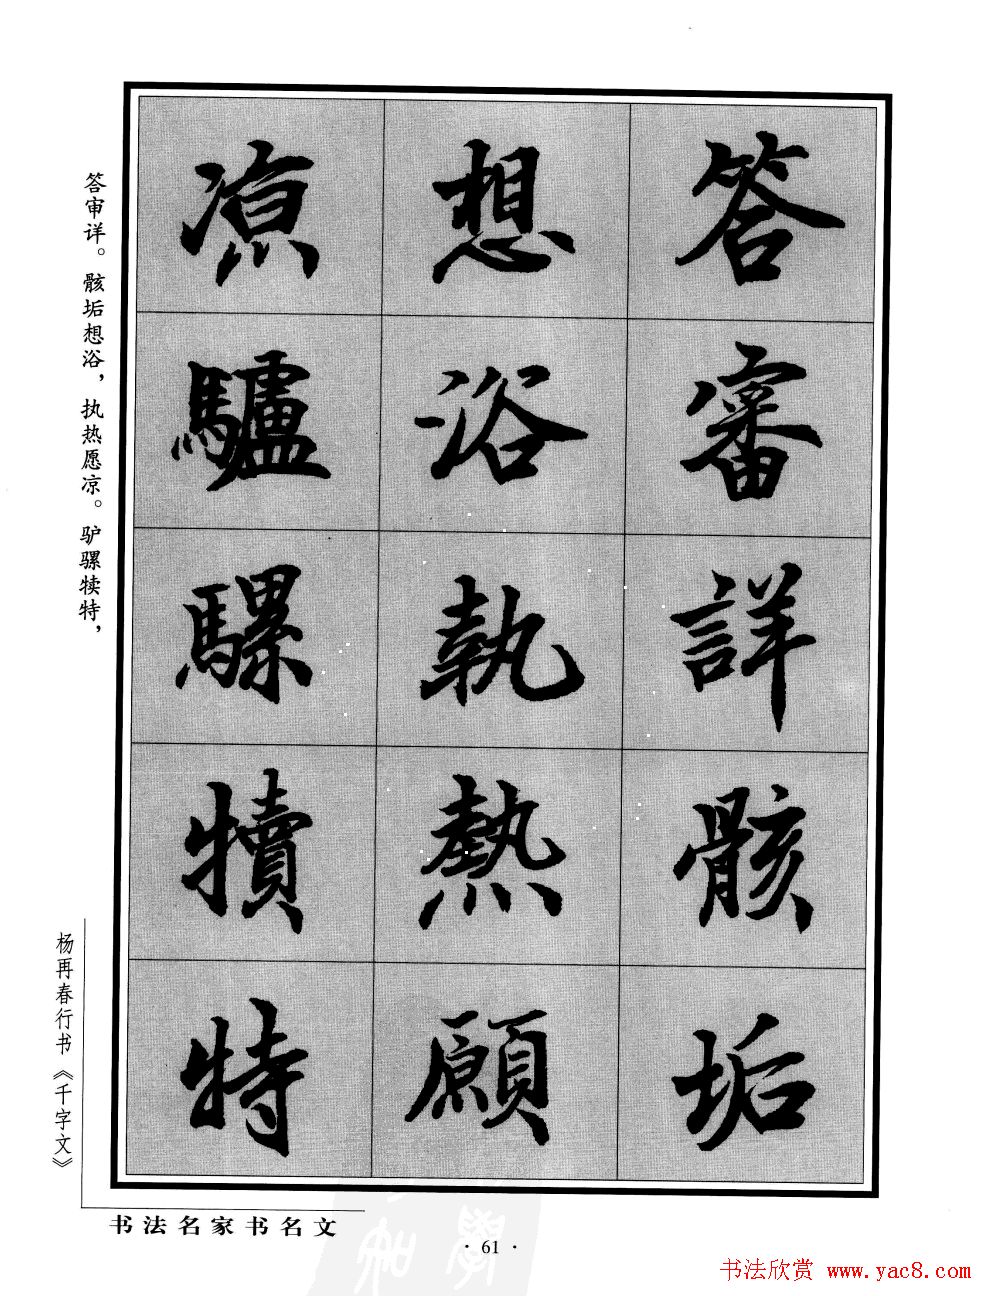 答審詳骸垢
想浴執熱願
凉驢騾犢特
答审详。骸垢想浴，执热愿凉。驴骡犊特，
杨再春行书《千字文》
书法名家书名文
· 61 ·
书法欣赏 www.yac8.com